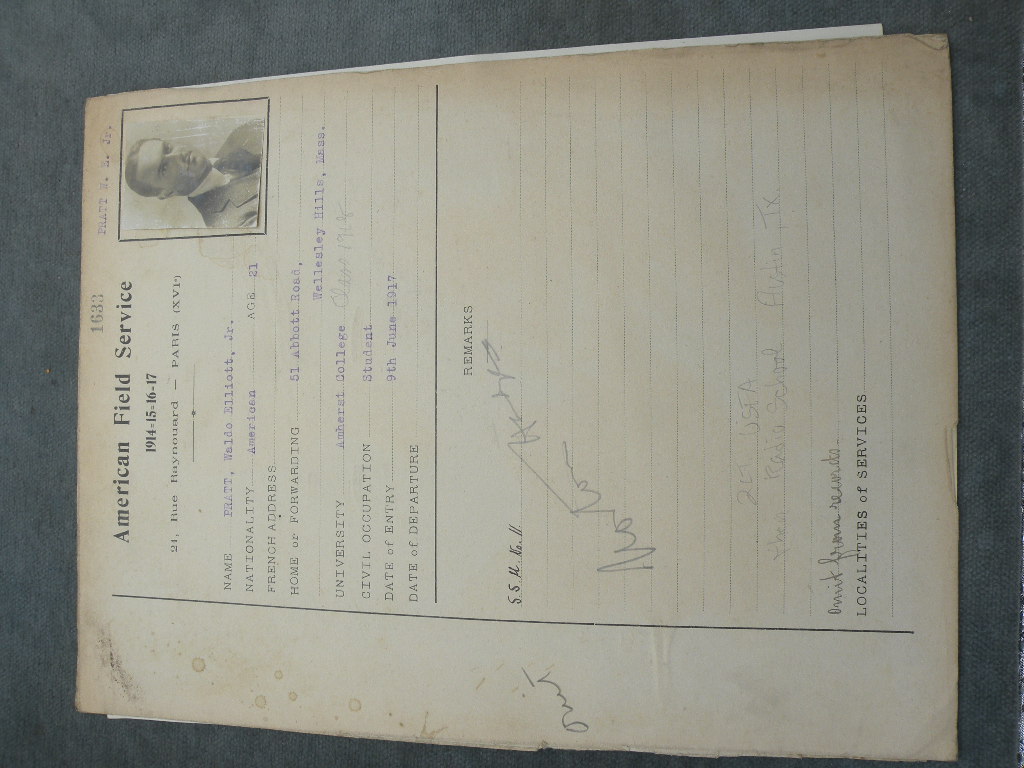 1633
PRATT W. E. Jr.
American Field Service
1914=15=16=17
21, Rue Raynouard — PARIS (XVIe)
NAME PRATT, Waldo Elliott, Jr.
NATIONALITY American AGE 21
FRENCH ADDRESS
HOME or FORWARDING 51 Abbott Road,
Wellesley Hills, Mass.
UNIVERSITY Amherst College Class 1918
CIVIL OCCUPATION Student
DATE of ENTRY 9th June 1917
DATE of DEPARTURE
REMARKS
S.S.U. No. 11.
No
No
Omit
24 USTA
then Radio School Austin Tx
Omit from records
LOCALITIES of SERVICES